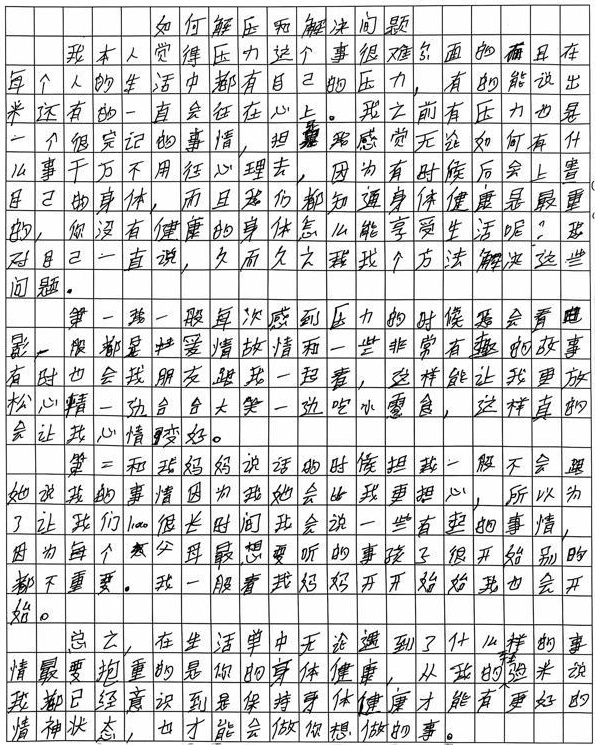 如何解压和解决问题
我本人觉得压力这个事很难尔面的而且在
每个人的生活中都有自己的压力，有的能说出
来还有的一直会往在心上。我之前有压力也是
一个很完记的事情，担是我感觉无论如何有什
么事千万不用往心理去，因为有时候后会上害
自己的身体，而且我们都知通身体健康是最重
的，你没有健康的身体怎么能享受生活呢？我
对自己一直说，久而久之我找个方法解决这些
问题。
第一我一般每次感到压力的时候我会看电
影一般都是爱情故情和一些非常有趣的故事
有时也会我朋友跟我一起看，这样能让我更放
松心精一边台台大笑一边吃水零食，这样真的
会让我心情变好。
第二和我妈妈说话的时候担我一般不会跟
她说我的事情因为我她会比我更担心，所以为
了让我们很长时间我会说一些有趣的事情，
因为每个父母最想要听的事孩了很开始别的
都不重要。我一般看我妈妈开开始始我也会开
始。
总之，在生活单中无论遇到了什么样的事
情最要抱重的是你的身体健康，从我的经验来说
我都已经意识到是保持身体健康才能有更好的
情神状态，也才能会做你想做的事。